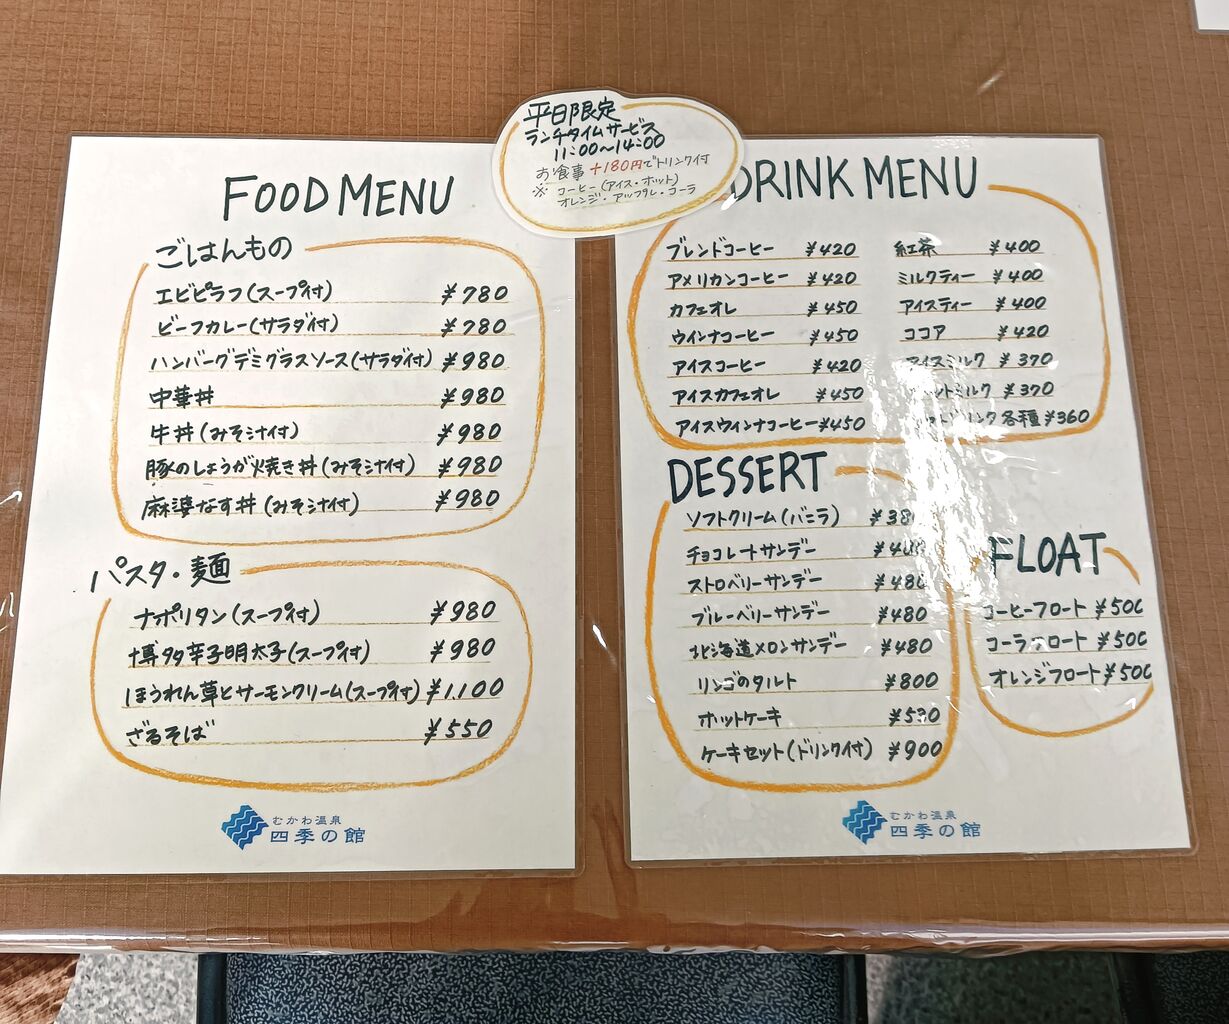 平日限定
ランチタイムサービス
11:00〜14:00
お食事 +180円でドリンク付
※ コーヒー(アイス・ホット)
オレンジ・アップル・コーラ
FOOD MENU
ごはんもの
エビピラフ(スープ付) ¥780
ビーフカレー(サラダ付) ¥780
ハンバーグデミグラスソース(サラダ付) ¥980
中華丼 ¥980
牛丼(みそ汁付) ¥980
豚のしょうが焼き丼(みそ汁付) ¥980
麻婆なす丼(みそ汁付) ¥980
パスタ・麺
ナポリタン(スープ付) ¥980
博多辛子明太子(スープ付) ¥980
ほうれん草とサーモンクリーム(スープ付) ¥1.100
ざるそば ¥550
むかわ温泉
四季の館
DRINK MENU
ブレンドコーヒー ¥420
アメリカンコーヒー ¥420
カフェオレ ¥450
ウインナコーヒー ¥450
アイスコーヒー ¥420
アイスカフェオレ ¥450
アイスウインナコーヒー ¥450
紅茶 ¥400
ミルクティー ¥400
アイスティー ¥400
ココア ¥420
アイスミルク ¥370
ミルク ¥370
各種 ¥360
DESSERT
ソフトクリーム(バニラ) ¥380
チョコレートサンデー
ストロベリーサンデー ¥480
ブルーベリーサンデー ¥480
北海道メロンサンデー ¥480
リンゴのタルト ¥800
ホットケーキ ¥530
ケーキセット(ドリンク付) ¥900
FLOAT
コーヒーフロート ¥500
コーラフロート ¥500
オレンジフロート ¥500
むかわ温泉
四季の館